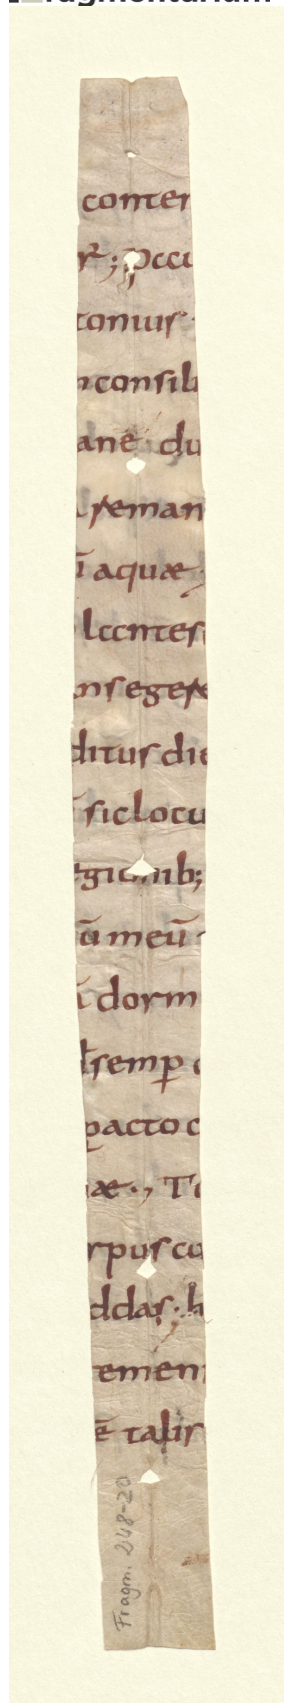 conter
r̄; Occu
tonius·
nconsili
ane du
reman
ū aquæ·
lccntes
ns egere
ditus die
sic locu
egionib;
ū meū
dorm
semꝑ
pacto c
æ·, T
rpus co
ddas; h
emen
ē talis
Fragm. 248-20